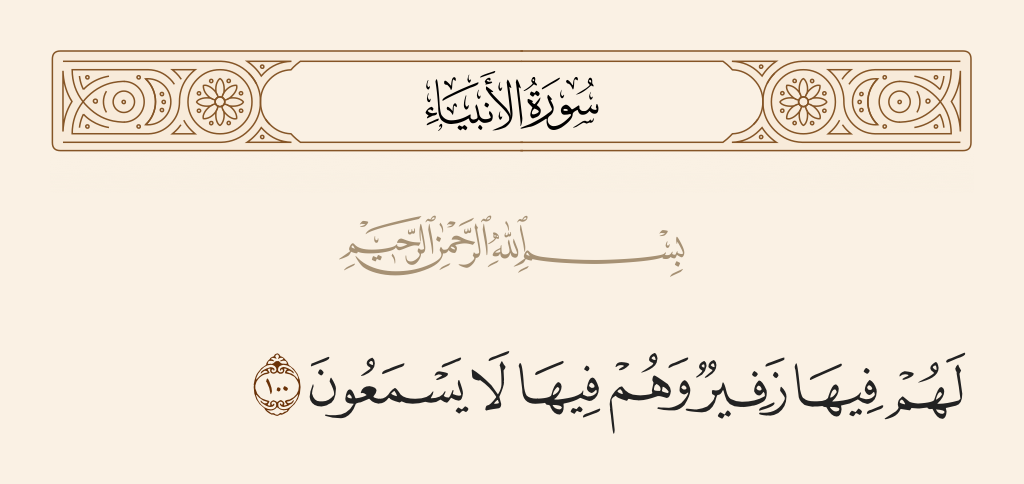 سُورَةُ الأَنبِيَاءِ
بِسْمِ ٱللَّهِ ٱلرَّحْمَٰنِ ٱلرَّحِيمِ
لَهُمْ فِيهَا زَفِيرٌ وَهُمْ فِيهَا لَا يَسْمَعُونَ ١٠٠